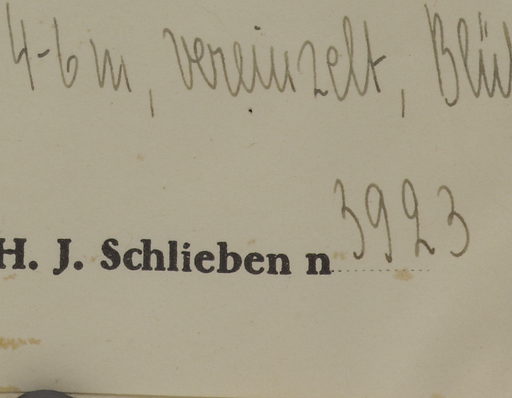 4-6 m, vereinzelt, Blü
H. J. Schlieben n 3923